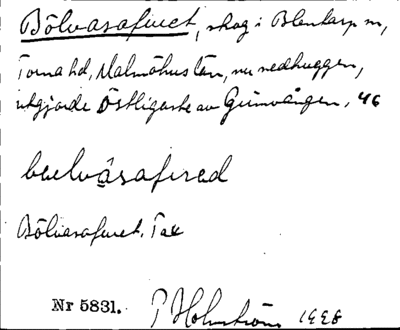 Bölvasafuret, skog i Blentarp sn,
Torna hd, Malmöhus län, nu nedhuggen,
utgjorde Östligaste av Grimvången, 46
Bölvasafuret. Tax
Nr 5831. P Holmström 1928